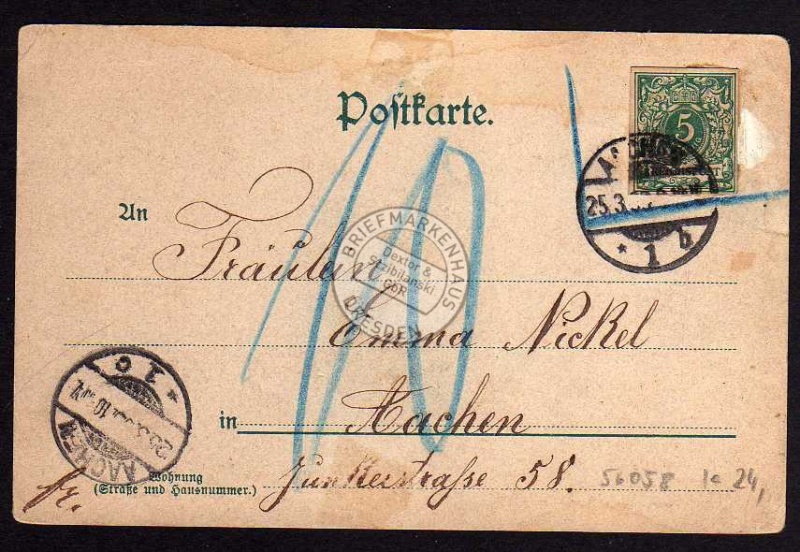 Postkarte.
10
5
AACHEN
25.3.
* 1 b
An
Fräulein
Emma Nickel
BRIEFMARKENHAUS
Dextor &
Strzibilanski
GbR
DRESDEN
in Aachen
Wohnung
(Straße und Hausnummer.)
Junkerstraße 58.
fr.
* 1 o
25.3.
AACHEN
56058 1c 24,